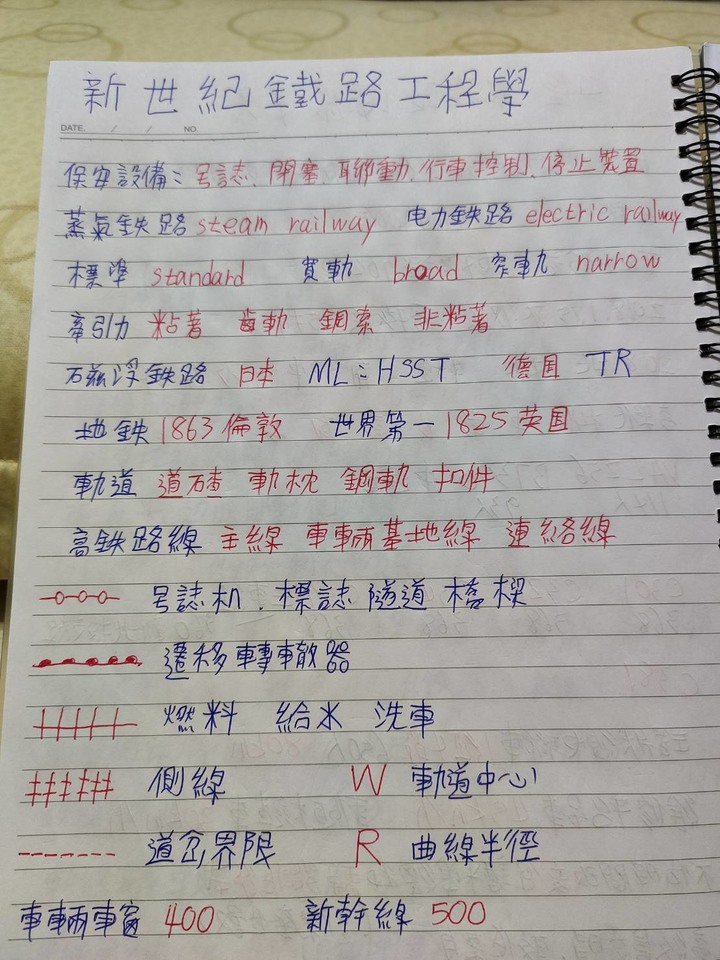 新世紀鐵路工程學
DATE. / / NO.
保安設備：号誌、閉塞、聯動、行車控制、停止裝置
蒸氣鉄路 steam railway 电力鉄路 electric railway
標準 standard 寬軌 broad 窄軌 narrow
牽引力 粘著 齒軌 鋼索 非粘著
磁浮鉄路 日本 ML：HSST 德国 TR
地鉄 1863 倫敦 世界第一 1825 英国
軌道 道碴 軌枕 鋼軌 扣件
高鉄路線 主線 車輛基地線 連絡線
号誌机、標誌 隧道 橋樑
遷移轉轍器
燃料 給水 洗車
側線 W 軌道中心
道岔界限 R 曲線半徑
車輛車窗 400 新幹線 500